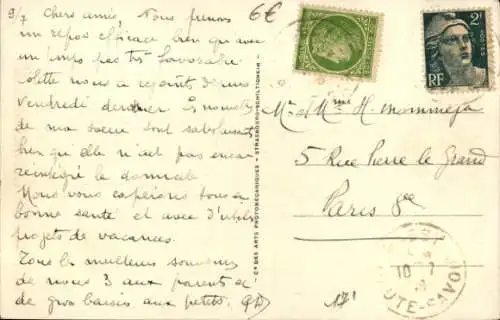 9/7 chers amis, Nous prenons
un repos efficace bien que avec
un temps pas très favorable
Colette nous a rejoint depuis
vendredi dernier.
de ma soeur sont
bien qu'elle n'ait pas encore
réintégré le domicile
Nous vous espérons tous en
bonne santé et avec d'utiles
projets de vacances.
Tous les meilleurs souvenirs
de nous 3 aux parents et
de gros baisers aux petits.
6€
Cie DES ARTS PHOTOMÉCANIQUES - STRASBOURG-SCHILTIGHEIM
2F
POSTES
RF
Mr et Mme H.
5 Rue Pierre le Grand
Paris 8e
171
10-7
HAUTE-SAVOIE